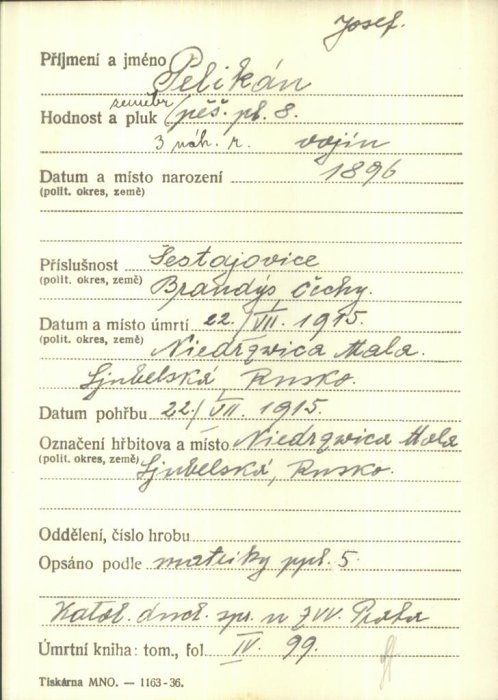 Josef.
Příjmení a jméno Pelikán
zeměbr
Hodnost a pluk pěš. pl. 8.
3 náh. r. vojín
Datum a místo narození 1896
(polit. okres, země)
Příslušnost Šestajovice
(polit. okres, země) Brandýs Čechy.
Datum a místo úmrtí 22./VII. 1915.
(polit. okres, země) Niedrzwica Mala.
Ljubelská, Rusko.
Datum pohřbu 22./VII. 1915.
Označení hřbitova a místo Niedrzwica Mala
(polit. okres, země) Ljubelská, Rusko.
Oddělení, číslo hrobu
Opsáno podle matriky ppl. 5.
Katol. duch. spr. u ZVV. Praha
Úmrtní kniha: tom., fol. IV. 99.
Tiskárna MNO. — 1163-36.